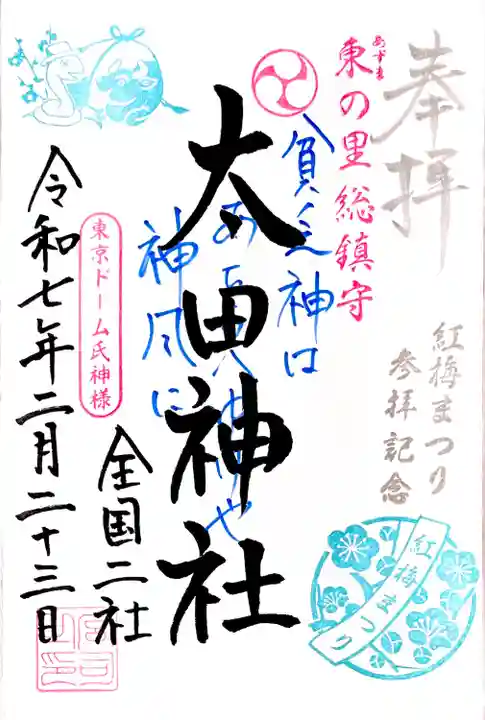 奉拝
紅梅まつり
参拝記念
紅梅まつり
東の里総鎮守
あずま
貧乏神は
神風に
太田神社
全国二社
東京ドーム氏神様
令和七年二月二十三日